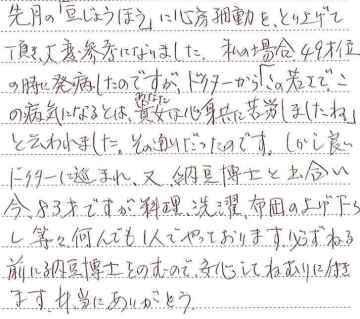 先月の「豆じょうほう」に心房細動を、とり上げて
頂き、大変参考になりました。私の場合49才位
の時に発病したのですが、ドクターから「この若さで、こ
の病気になるとは、貴女は心身共に苦労しましたね」
と云われました。その通りだったのです。しかし良い
ドクターに巡まれ、又、納豆博士と出合い
今、83才ですが料理、洗濯、布団の上げ下ろ
し等々、何んでも1人でやっております。必ずねる
前に納豆博士をのむので、安心してねむりに付き
ます。本当にありがとう。